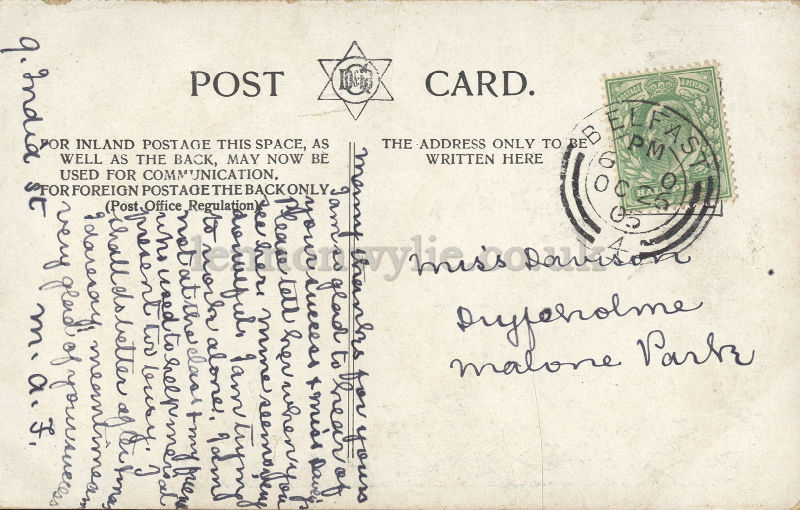 POST CARD.
FOR INLAND POSTAGE THIS SPACE, AS
WELL AS THE BACK, MAY NOW BE
USED FOR COMMUNICATION.
FOR FOREIGN POSTAGE THE BACK ONLY
(Post Office Regulation)
THE ADDRESS ONLY TO BE
WRITTEN HERE
BELFAST
PM
OC 25
05
4
POSTAGE & REVENUE
Miss Davison
Malone Park
9. India St
Many thanks for yours
I am glad to hear of
your success & Miss
Please tell her when you
see her. Mine seems very
I am trying
to work alone. I am
not at the class & my
who used to help me is at
present too busy. I
shall do better after time
I daresay, meantime am
very glad of your success
M. A. F.
lennonwylie.co.uk